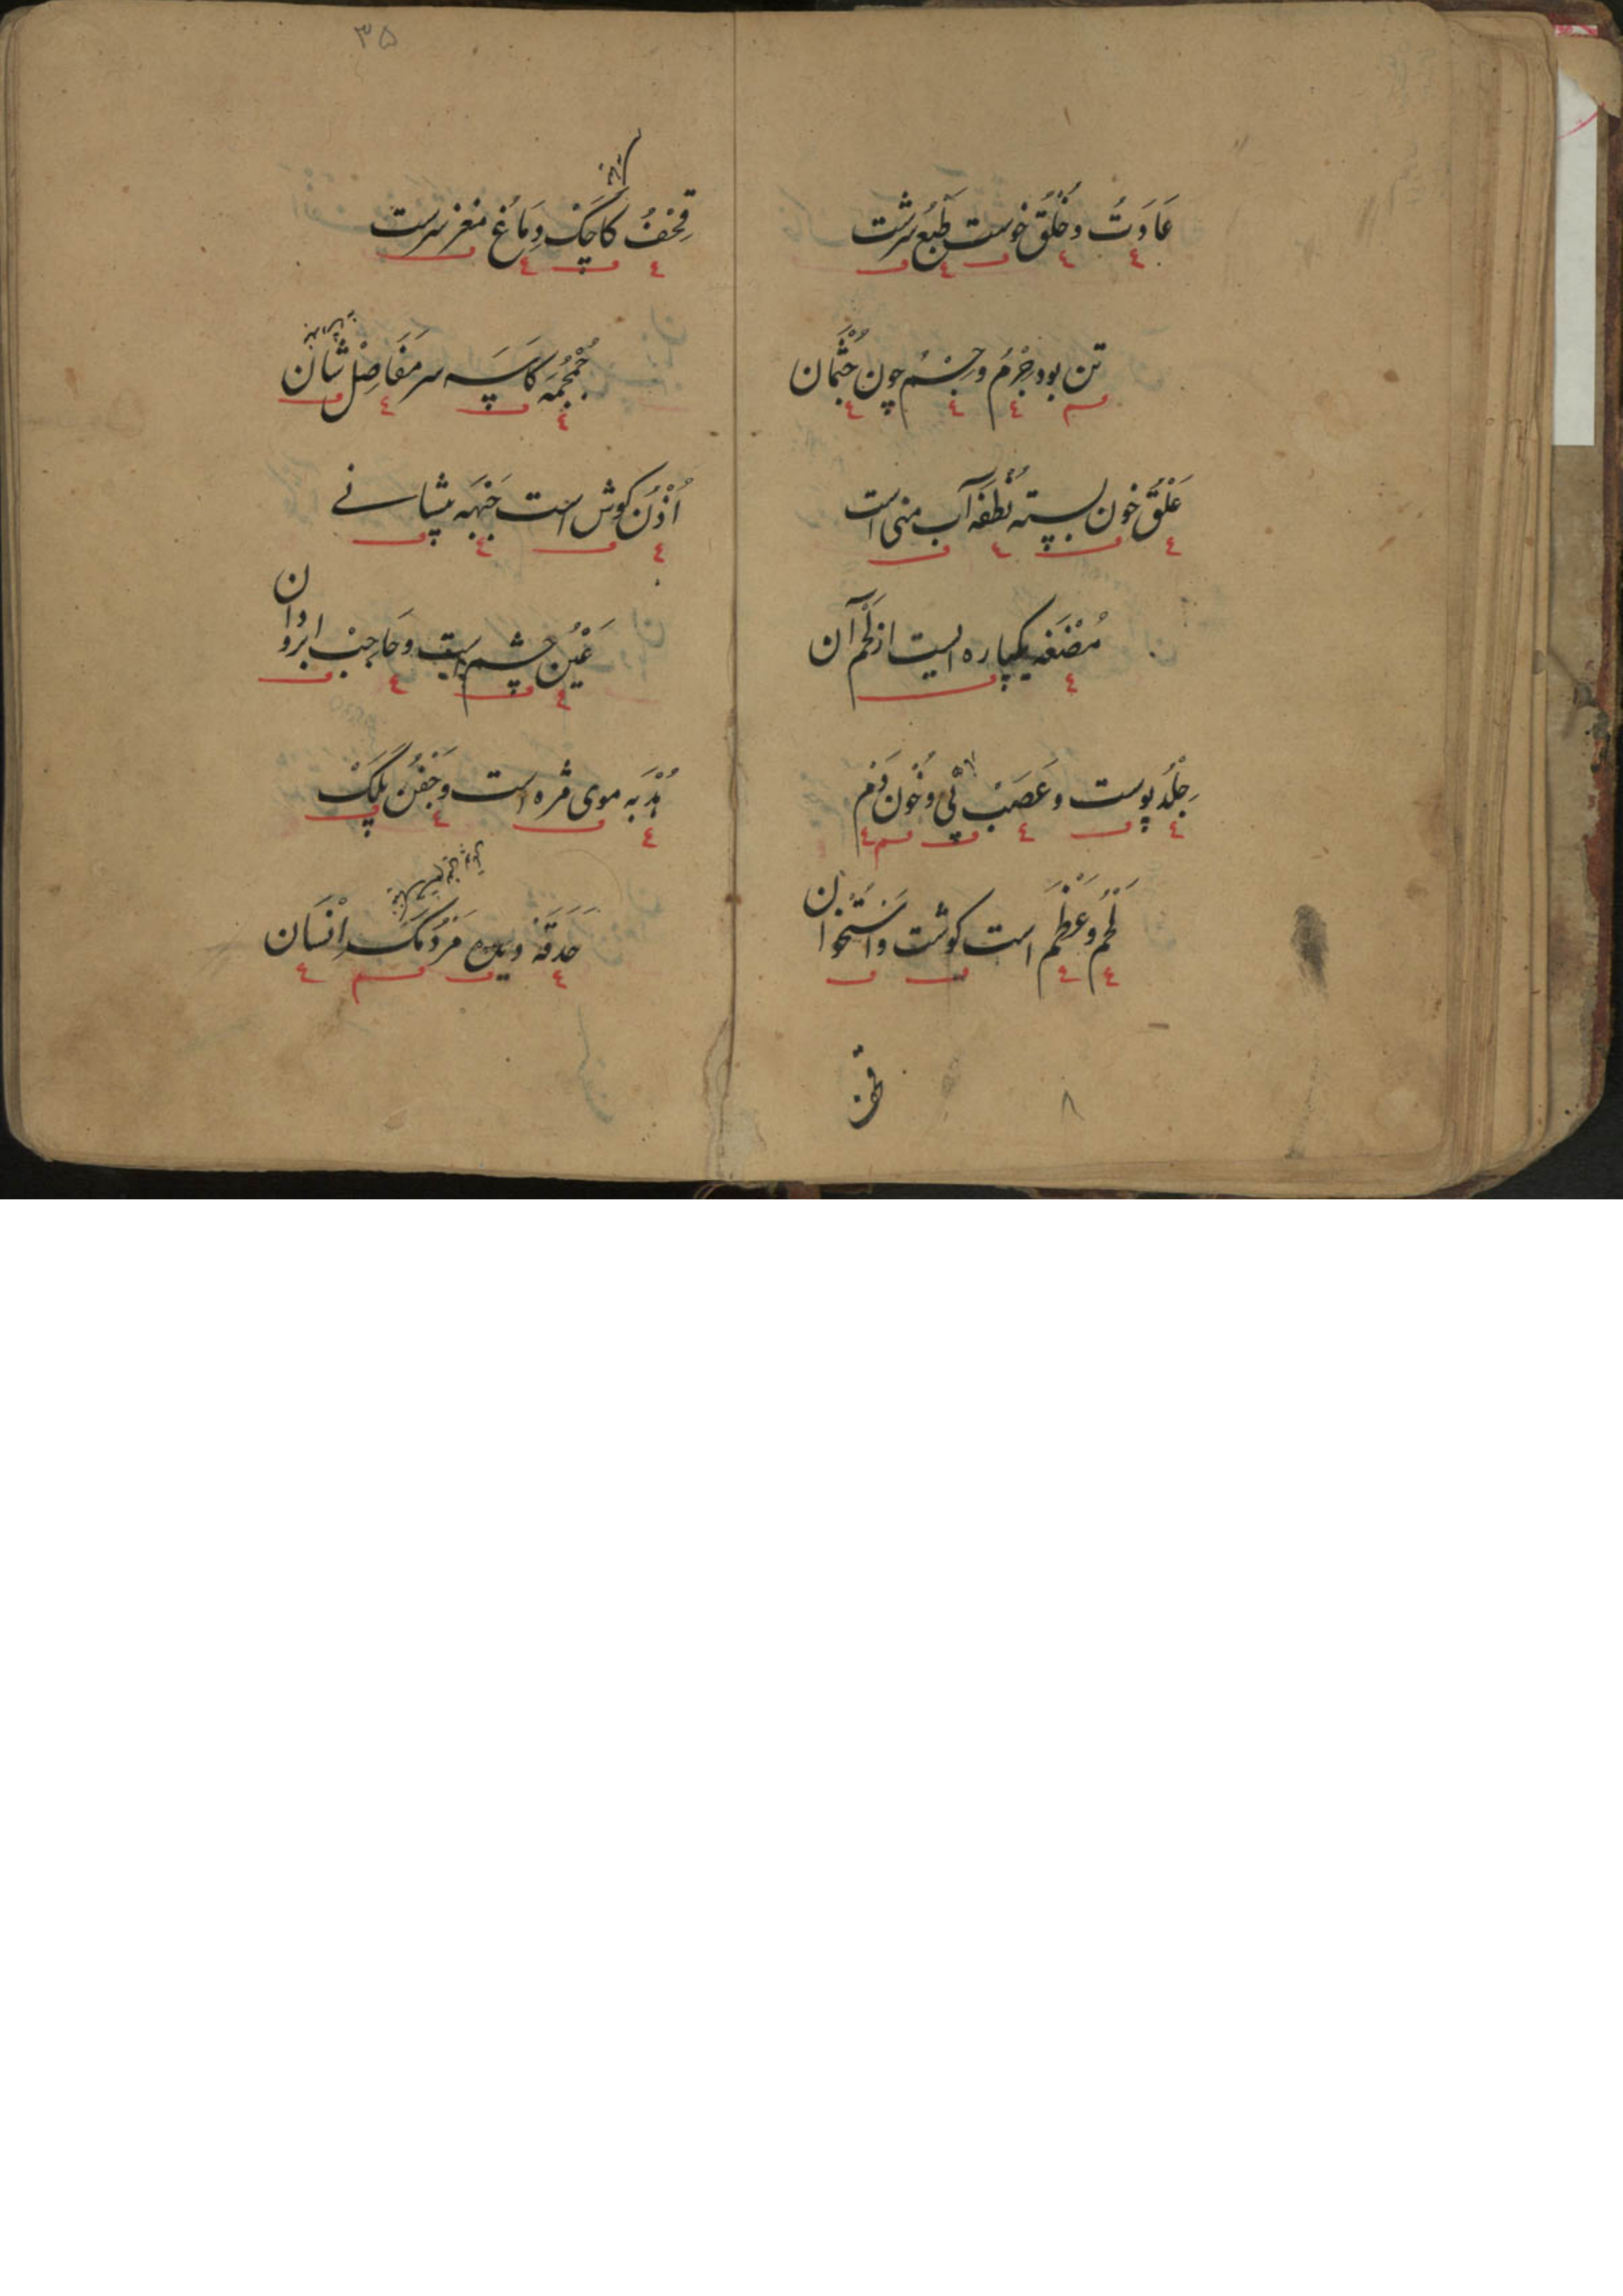 عَادَتْ وخُلُقْ خوست طَبْعْ سرشت
تن بود جِرْمُ وجِسْمُ چون جُثْمَان
عَلَقْ خون بسته نُطْفَه آب منی است
مُضْغَه یکپاره ایست از لَحْمِ آن
جِلْدُ پوست و عَصَبْ پَیْ و خُون دَمْ
لَحْمُ و عَظْمْ است کوشت واسْتُخوان
قحف
۸
۳۵
قِحْفُ کاجَکْ دِمَاغْ مغز سرست
جُمْجُمَه کاسَه سر مَفَاصِلْ شان
اُذْن کوش است جَبْهَه پیشانے
عَیْن چشم است و حَاجِبْ ابروان
هُدْبَه موی مژه است وَجَفْن پَلَکْ
حَدَقَه دیده مَرْدُمَکْ اِنْسَان